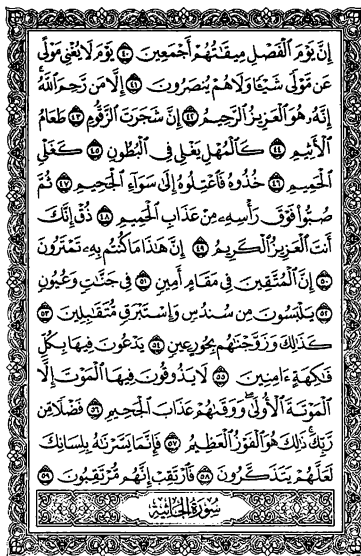 إِنَّ يَوْمَ ٱلْفَصْلِ مِيقَـٰتُهُمْ أَجْمَعِينَ ٤٠ يَوْمَ لَا يُغْنِى مَوْلًى
عَن مَّوْلًى شَيْـًٔا وَلَا هُمْ يُنصَرُونَ ٤١ إِلَّا مَن رَّحِمَ ٱللَّهُ
إِنَّهُۥ هُوَ ٱلْعَزِيزُ ٱلرَّحِيمُ ٤٢ إِنَّ شَجَرَتَ ٱلزَّقُّومِ ٤٣ طَعَامُ
ٱلْأَثِيمِ ٤٤ كَٱلْمُهْلِ يَغْلِى فِى ٱلْبُطُونِ ٤٥ كَغَلْىِ
ٱلْحَمِيمِ ٤٦ خُذُوهُ فَٱعْتِلُوهُ إِلَىٰ سَوَآءِ ٱلْجَحِيمِ ٤٧ ثُمَّ
صُبُّوا۟ فَوْقَ رَأْسِهِۦ مِنْ عَذَابِ ٱلْحَمِيمِ ٤٨ ذُقْ إِنَّكَ
أَنتَ ٱلْعَزِيزُ ٱلْكَرِيمُ ٤٩ إِنَّ هَـٰذَا مَا كُنتُم بِهِۦ تَمْتَرُونَ
٥٠ إِنَّ ٱلْمُتَّقِينَ فِى مَقَامٍ أَمِينٍ ٥١ فِى جَنَّـٰتٍ وَعُيُونٍ
٥٢ يَلْبَسُونَ مِن سُندُسٍ وَإِسْتَبْرَقٍ مُّتَقَـٰبِلِينَ ٥٣
كَذَٰلِكَ وَزَوَّجْنَـٰهُم بِحُورٍ عِينٍ ٥٤ يَدْعُونَ فِيهَا بِكُلِّ
فَـٰكِهَةٍ ءَامِنِينَ ٥٥ لَا يَذُوقُونَ فِيهَا ٱلْمَوْتَ إِلَّا
ٱلْمَوْتَةَ ٱلْأُولَىٰ وَوَقَىٰهُمْ عَذَابَ ٱلْجَحِيمِ ٥٦ فَضْلًا مِّن
رَّبِّكَ ذَٰلِكَ هُوَ ٱلْفَوْزُ ٱلْعَظِيمُ ٥٧ فَإِنَّمَا يَسَّرْنَـٰهُ بِلِسَانِكَ
لَعَلَّهُمْ يَتَذَكَّرُونَ ٥٨ فَٱرْتَقِبْ إِنَّهُم مُّرْتَقِبُونَ ٥٩
سُورَةُ الْجَاثِيَةِ